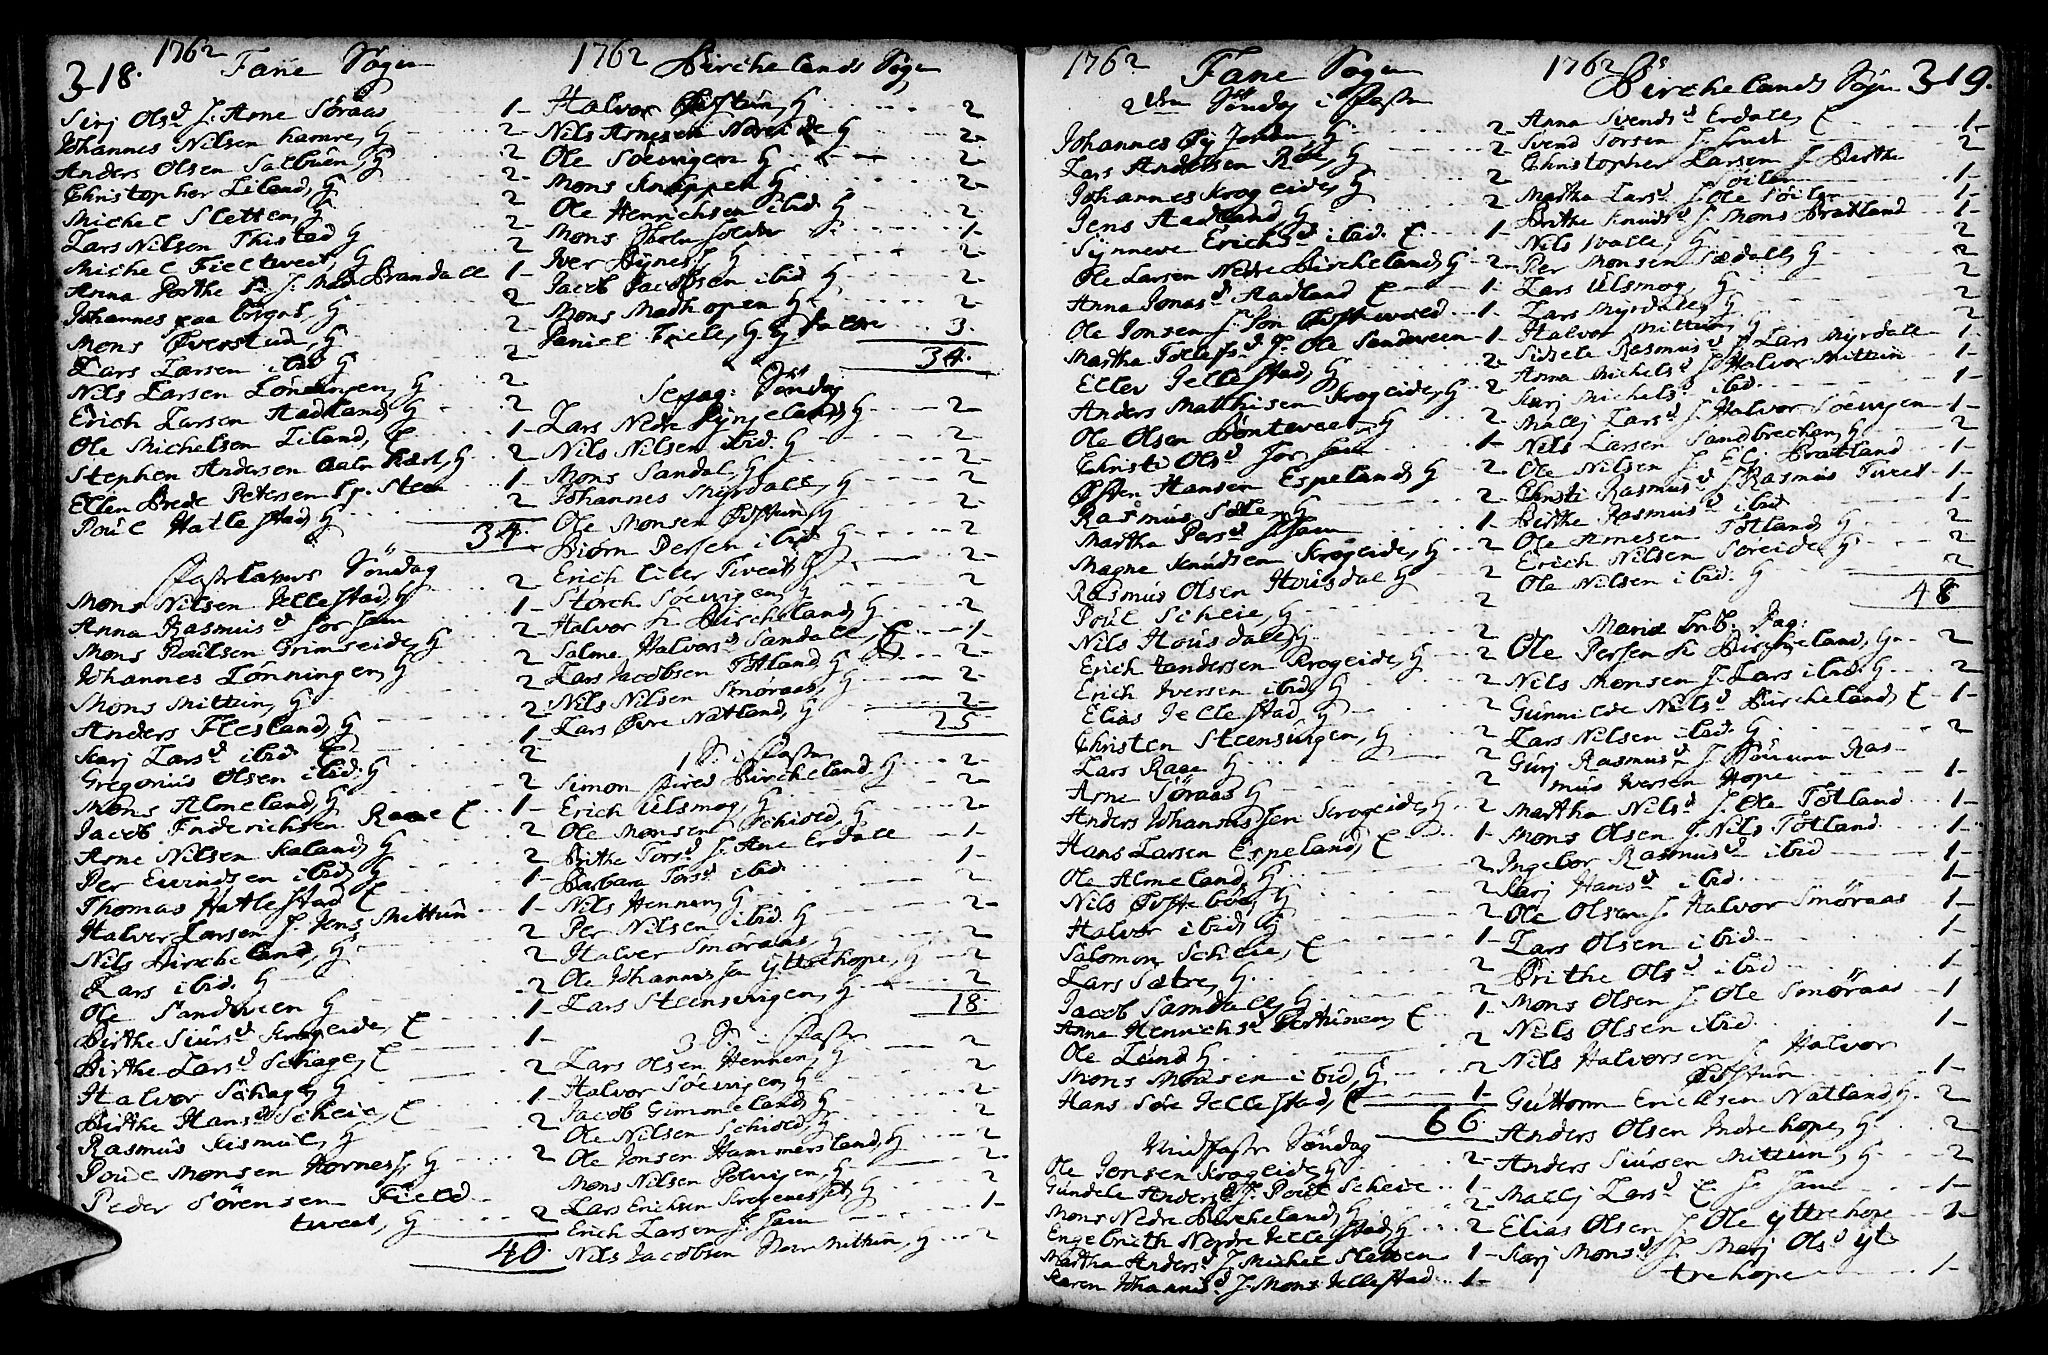 318. 1762 Fane Sogn
Sirj Olsd. J. Arne Söraas 1-
Johannes Nilsen Hamre, G 2-
Anders Olsen Salbuen G 2
Christopher Liland, G 2-
Michel Sletten, G 2
Lars Nilsen Thistad G 2
Michel Fieltweet, G 2
Anna J. Mads Brandall 1-
Johannes paa G 2
Mons Överstud, G 2
Lars Larsen ibid G 2
Nils Larsen Lönningen, G 2
Erich Larsen Aadland, G 2
Ole Michelsen Liland, E 1-
Stephen Andersen G 2
Ellen Brede Petersen 1-
Poul Hatlestad, G 2
34
Fastelavns Söndag
Mons Nilsen Jellestad, G 2
Anna Rasmusd. 1-
Mons Poulsen Grimseide, G 2
Johannes Lönningen, G 2
Mons Mittun, G 2
Anders Flesland, G 2
Karj Larsd. ibid. E 1
Gregorius Olsen ibid. G 2
Mons Almeland, G 2
Jacob Friderichsen Raae E 1-
Arne Nilsen Kaland, G 2
Per Ewindsen ibid, G 2
Thomas Hatlestad E 1-
Halvor Larsen J. Jens Mittun 1-
Nils Bircheland, G 2
Lars ibid. G 2
Ole Sandween G 2
Birthe Siursd. Krogeide, E 1-
Birthe Larsd. Schage, E 1-
Halvor Schage G 2
Birthe Hansd. Scheie, E 1
Rasmus Kismul, G 2
Poul Monsen Hornes, G 2
Peder Sörensen Field
tweet, G 2
40.
1762 Birchelands Sogn
Halvor Östtun, G 2
Nils Arnesen Nordeide G 2
Ole Söevigen G 2
Mons Knappen G 2
Ole Henrichsen ibid. G 2
Mons 1-
Iver Bynes, G 2
Jacob Jacobsen ibid G 2
Mons Madhopen G 2
Daniel Fiell, G. 3.
34.
Sexag: Söndag
Lars Nedre Birgeland, G 2
Nils Nilsen ibid. G 2
Mons Sandal, G 2
Johannes Myrdall, G 2
Ole Monsen Östtun, G 2
Biörn Persen ibid. G 2
Erich Tweit, G 2
Störch Söewigen G 2
Halvor Bircheland, G 2
Salme Halvorsd. Sandall, E 1-
Lars Jacobsen Totland, G 2
Nils Nilsen Smöraas, G 2
Lars Övre Natland, G 2
25
1 S. i Fasten
Simon Bircheland, G 2
Erich Ulsmog, G 2
Ole Monsen Schiold, G 2
Brithe Torsd. J. Arne Erdall 1-
Barbara Torsd. ibid. 1-
Nils Hennen, G 2
Per Nilsen ibid. G 2
Halver Smöraas, G 2
Ole Johannissen Yttrehope, G 2
Lars Steensvigen, G 2
18.
3 S. i Fasten
Lars Olsen Hennen, G 2
Halvor Söevigen, G 2
Jacob Gimmeland, G 2
Ole Nilsen Schiold, G 2
Ole Jonsen Hammersland, G 2
Mons Nilsen G 2
Lars Erichsen G 2
Erich Larsen J. 1-
Nils Jacobsen Mittun, G 2
1762 Fane Sogn
2den Söndag i Fasten
Johannes G 2
Lars Andersen G 2
Johannes Krogeide, G 2
Jens Aadland, G 2
Synneve Erichsd. ibid. E 1
Ole Larsen Nedre Bircheland, G 2
Anna Jonasd. Aadland E 1
Ole Jonsen J. Jon 1-
Martha Tollefsd. J. Ole Sandween 1-
Eller Jellestad, G 2
Anders Matthisen Krogeide, G 2
Ole Olsen Böntweet, G 2
Christi Olsd. 1-
Östen Hansen Espeland, G 2
Rasmus Sæter, G 2
Martha Persd. 1
Magne Knudsen Krogeide, G 2
Rasmus Olsen Housdal G 2
Poul Scheie, G 2
Nils Housdall, G 2
Erich Andersen Krogeide, G 2
Erich Iversen ibid, G 2
Elias Jellestad, G 2
Christen Steensvigen, G 2
Lars Raae G 2
Arne Söraas G 2
Anders Johannissen Krogeide, G 2
Hans Larsen Espeland, E 1
Ole Almeland, G 2
Nils Östteböe, G 2
Halvor ibid, G 2
Salomon Scheie, E 1-
Lars Sætre, G 2
Jacob Samdall, G 2
Anna Henrichsd. E 1
Ole Lund G 2
Mons Monsen ibid, G 2
Hans Söre Jellestad, E 1-
66
Midfaste Söndag
Ole Jonsen Krogeide, G 2-
Gundele Andersd. J. Poul Scheie 1-
Mons Nedre Bircheland, G 2
Engelbricth Nedre Jellestad, G 2
Martha Andersd. J. Michel Sletten 1-
Karen Johannisd. J. Mons Jellestad 1-
1762 Birchelands Sogn 319.
Anna Svendsd. Erdall, E 1-
Svend Torsen J. 2
Christopher Larsen J. Birthe
Söiler 1-
Martha Larsd. J. Ole Söiler 1-
Brithe Knudsd. J. Mons Bratland 1-
Nils Walle, G 2
Per Monsen Sædall, G 2
Lars Ulsmog, G 2
Lars Myrdall, G 2
Halvor Mittun, G 2
Sidsele Rasmusd. J. Lars Myrdall 1-
Anna Michelsd. J. Halvor Mittun 1-
Karj Michelsd. ibid. 1-
Mallj Larsd. J. Halvor Söevigen 1-
Nils Larsen Sandbrechen, G 2
Ole Nilsen J. Elj Bratland 1-
Christi Rasmusd. J. Rasmus Tweit 1-
Birthe Rasmusd. ibid 1-
Ole Arnesen Totland, G 2
Erich Nilsen Soreide, G 2
Ole Nilsen ibid. G 2
48
Mariæ Dag:
Ole Persen Bircheland, G 2
Nils Monsen J. Lars ibid. G 2
Gunnilde Nilsd. Bircheland, E 1-
Lars Nilsen ibid. G 2
Gurj Rasmusd. J. Ras-
mus Iversen Hope 1-
Martha Nilsd. J. Ole Totland 1-
Mons Olsen J. Nils Totland 1-
Ingebor Rasmusd. ibid 1-
Karj Hansd. ibid. 1-
Ole Olsen J. Halvor Smöraas 1-
Lars Olsen ibid 1-
Brithe Olsd. ibid 1-
Mons Olsen J. Ole Smöraas 1
Nils Olsen ibid. 1-
Nils Halvorsen J. Halvor
Östtun 1-
Guttorm Ericksen Natland, G. 2
Anders Olsen Indrehope, G 2
Anders Siursen Mittun, G 2
Mallj Larsd. E 1-
Elias Olsen J. Ole Yttrehope 1-
Karj Monsd. J. Marj Olsd. Yt
trehope 1-